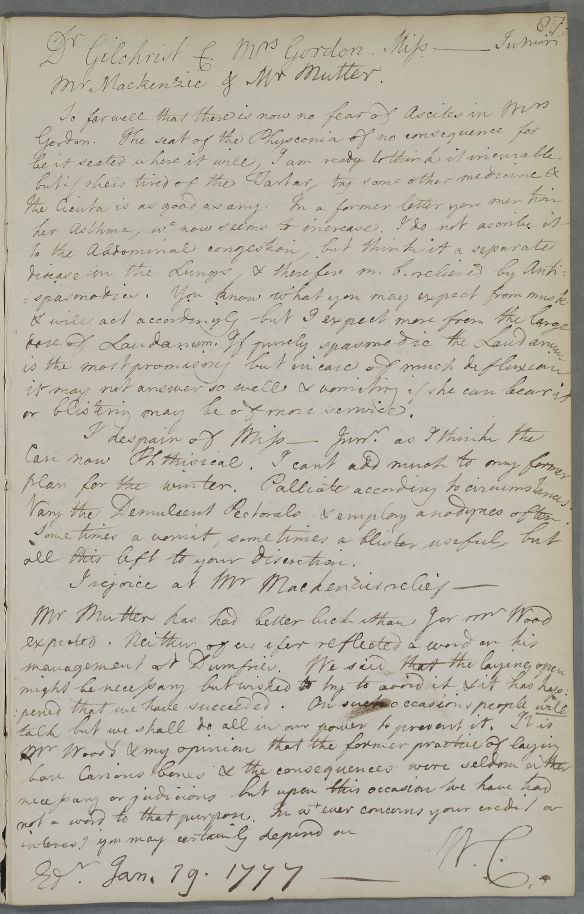 87.
Dr Gilchrist C. Mrs Gordon. Miss —— Junior
Mr Mackenzie & Mr Mutter.
So far well that there is now no fear of Ascites in Mrs
Gordon. The seat of the Physconia of no consequence for
be it seated where it will, I am ready to think it incurable.
but if she is tired of the Tartar, try some other medicine &
the Cicuta is as good as any. In a former letter you mention
her Asthma, wc now seems to increase. I do not ascribe it
to the Abdominal congestion, but think it a separate
disease in the Lungs, & therefore m. b. relieved by Anti-
:spasmodics. You know what you may expect from musk
& will act accordingly, but I expect more from the large
dose of Laudanum. If purely spasmodic the Laudanum
is the most promising but in case of much defluxion
it may not answer so well & vomiting if she can bear it
or blistering may be of more service.
I despain of Miss — Junr. as I think the
Case now Phthisical. I cant add much to my former
plan for the winter. Palliate according to circumstances.
Vary the Demulcent Pectorals & employ anodynes often
Sometimes a vomit, sometimes a blister useful, but
all this left to your Discretion.
I rejoice at Mr Mackenzies relief —
Mr Mutter has had better luck than I or Mr Wood
expected. Neither of us ever reflected a word on his
management at Dumfries. We said that the laying open
might be necessary but wished to try to avoid it & it has hap:
:pened that we have succeeded On such occasions people will
talk but we shall do all in our power to prevent it. It is
Mr Wood's & my opinion that the former practice of laying
bare Carious bones & the consequences were seldom either
necessary or judicious but upon this occasion we have had
not a word to that purpose. In wt ever concerns your credit or
interest you may certainly depend on
W. C.
Edr. Jan. 19. 1777 ——